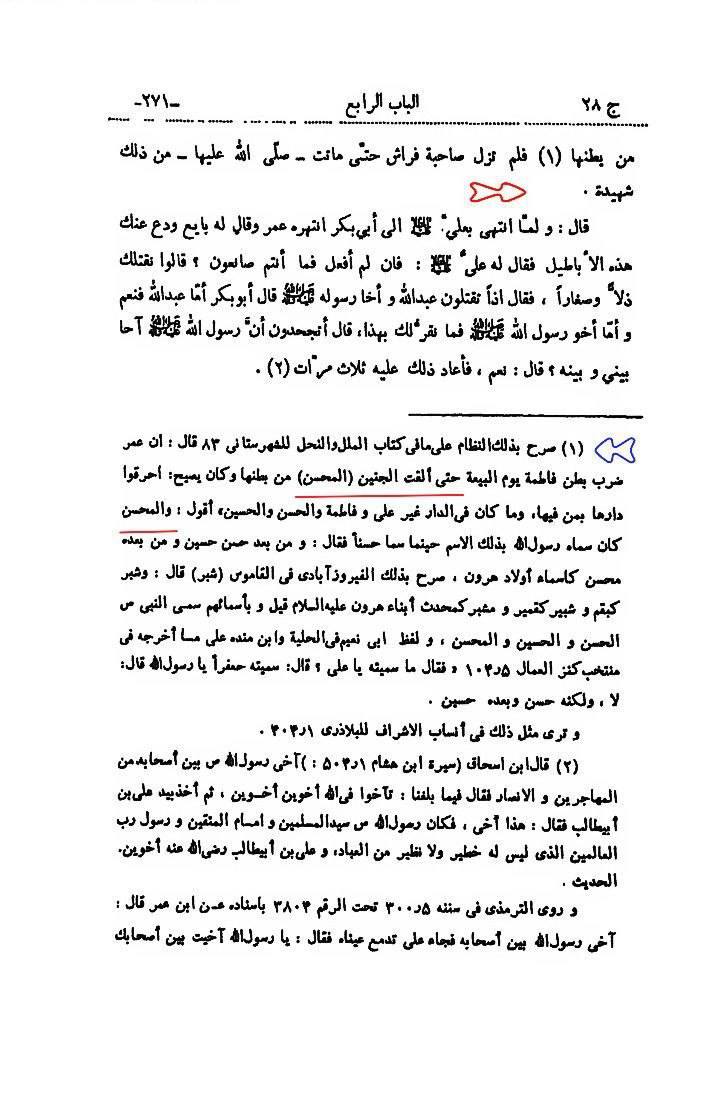 ج ٢٨ الباب الرابع -٢٧١-
من بطنها (١) فلم تزل صاحبة فراش حتّى ماتت ــ صلّى الله عليها ــ من ذلك
شهيدة .
قال : و لمّا انتهى بعليّ عليه السلام الى أبي بكر انتهره عمر وقال له بايع ودع عنك
هذه الأباطيل فقال له عليّ عليه السلام : فان لم أفعل فما أنتم صانعون ؟ قالوا نقتلك
ذلاّ وصغاراً ، فقال اذاً تقتلون عبدالله و أخا رسوله صلى الله عليه وآله قال أبوبكر أمّا عبدالله فنعم
و أمّا أخو رسول الله صلى الله عليه وآله فما نقرّ لك بهذا، قال أتجحدون أنّ رسول الله صلى الله عليه وآله آخا
بيني و بينه ؟ قال : نعم ، فأعاد ذلك عليه ثلاث مرّات (٢) .
(١) صرح بذلك النظام على ما فى كتاب الملل والنحل للشهرستانى ٨٣ قال : ان عمر
ضرب بطن فاطمة يوم البيعة حتى ألقت الجنين (المحسن) من بطنها وكان يصيح: احرقوا
دارها بمن فيها، وما كان فى الدار غير على و فاطمة والحسن والحسين، أقول : والمحسن
كان سماه رسول الله بذلك الاسم حينما سما حسناً فقال : و من بعد حسن حسين و من بعده
محسن كاسماء أولاد هرون ، صرح بذلك الفيروزآبادى فى القاموس (شبر) قال : وشبر
كبقم و شبير كقمير و مشبر كمحدث أبناء هرون عليه السلام قيل و بأسمائهم سمى النبى ص
الحسن و الحسين و المحسن ، و لفظ ابى نعيم فى الحلية وابن منده على مسا أخرجه فى
منتخب كنز العمال ٥ر١٠٤ «فقال ما سميته يا على ؟ قال: سميته جعفراً يا رسول الله قال:
لا ، ولكنه حسن وبعده حسين .
و ترى مثل ذلك فى أنساب الاشراف للبلاذرى ١ر٤٠٤ .
(٢) قال ابن اسحاق (سيرة ابن هشام ١ر٥٠٤ :) آخى رسول الله ص بين أصحابه من
المهاجرين و الانصار فقال فيما بلغنا : تآخوا فى الله أخوين أخوين ، ثم أخذ بيد على بن
أبيطالب فقال : هذا أخى ، فكان رسول الله ص سيد المسلمين و امام المتقين و رسول رب
العالمين الذى ليس له خطير ولا نظير من العباد، و على بن أبيطالب رضى الله عنه أخوين.
الحديث .
و روى الترمذى فى سننه ٥ر٣٠٠ تحت الرقم ٣٨٠٤ باسناده عن ابن عمر قال :
آخى رسول الله بين أصحابه فجاء على تدمع عيناه فقال : يا رسول الله آخيت بين أصحابك